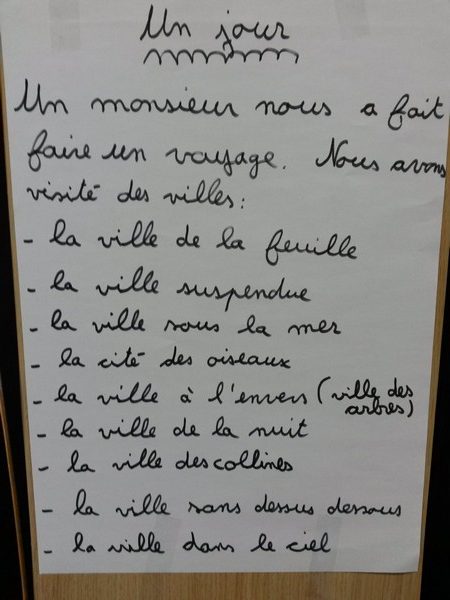 Un jour
Un monsieur nous a fait
faire un voyage. Nous avons
visité des villes :
- la ville de la feuille
- la ville suspendue
- la ville sous la mer
- la cité des oiseaux
- la ville à l'envers (ville des
arbres)
- la ville de la nuit
- la ville des collines
- la ville sans dessus dessous
- la ville dans le ciel